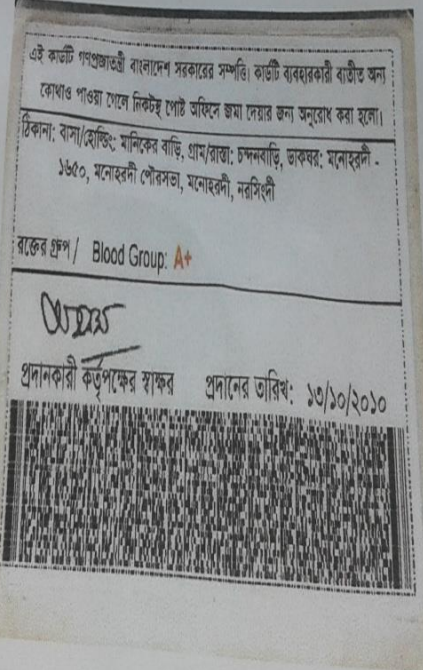 এই কার্ডটি গণপ্রজাতন্ত্রী বাংলাদেশ সরকারের সম্পত্তি। কার্ডটি ব্যবহারকারী ব্যতীত অন্য
কোথাও পাওয়া গেলে নিকটস্থ পোষ্ট অফিসে জমা দেয়ার জন্য অনুরোধ করা হলো।
ঠিকানা: বাসা/হোল্ডিং: মানিকের বাড়ি, গ্রাম/রাস্তা: চন্দনবাড়ি, ডাকঘর: মনোহরদী -
১৬৫০, মনোহরদী পৌরসভা, মনোহরদী, নরসিংদী
রক্তের গ্রুপ / Blood Group: A+
প্রদানকারী কর্তৃপক্ষের স্বাক্ষর প্রদানের তারিখ: ১৩/১০/২০১০